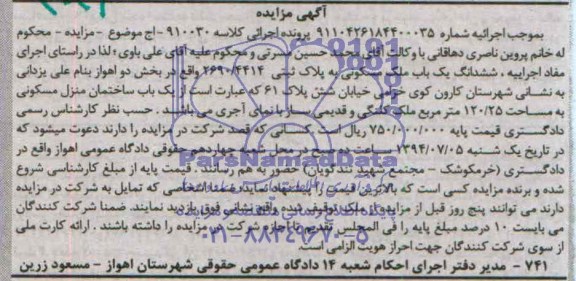 آگهی مزایده
بموجب اجرائیه شماره ۹۱۱۰۴۲۶۱۸۴۴۰۰۰۳۵ پرونده اجرائی کلاسه ۹۱۰۰۳۰ -اج موضوع - مزایده - محکوم
له خانم پروین ناصری دهاقانی با وکالت آقای محمد حسین مسرتی و محکوم علیه آقای علی باوی ؛ لذا در راستای اجرای
مفاد اجراییه ، ششدانگ یک باب ملک مسکونی به پلاک ثبتی ۲۶۹۰/۴۴۱۴ واقع در بخش دو اهواز بنام علی یزدانی
به نشانی شهرستان کارون کوی خزامی خیابان شش پلاک ۶۱ که عبارت است از یک باب ساختمان منزل مسکونی
به مساحت ۱۲۰/۲۵ متر مربع ملک کلنگی و قدیمی ساز با نمای آجری می باشد . حسب نظر کارشناس رسمی
دادگستری قیمت پایه ۷۵۰/۰۰۰/۰۰۰ ریال است .کسانی که قصد شرکت در مزایده را دارند دعوت میشود که
در تاریخ یک شنبه ۱۳۹۴/۰۷/۰۵ ساعت ده صبح در محل شعبه چهاردهم حقوقی دادگاه عمومی اهواز واقع در
دادگستری (خرمکوشک - مجتمع شهید تندگویان) حضور به هم رسانند . قیمت پایه از مبلغ کارشناسی شروع
شده و برنده مزایده کسی است که بالاترین قیمت را پیشنهاد نماید. ضمنا اشخاصی که تمایل به شرکت در مزایده
دارند می توانند پنج روز قبل از مزایده از ملک توقیف شده واقع نشانی فوق بازدید نمایند. ضمنا شرکت کنندگان
می بایست ۱۰ درصد مبلغ پایه را فی المجلس تقدیم تا اجازه شرکت در مزایده را داشته باشند . ارائه کارت ملی
از سوی شرکت کنندگان جهت احراز هویت الزامی است
۷۴۱ - مدیر دفتر اجرای احکام شعبه ۱۴ دادگاه عمومی حقوقی شهرستان اهواز - مسعود زرین
ParsNamadData
۰۲۱-۸۸۳۴۹۶۷۰-۵